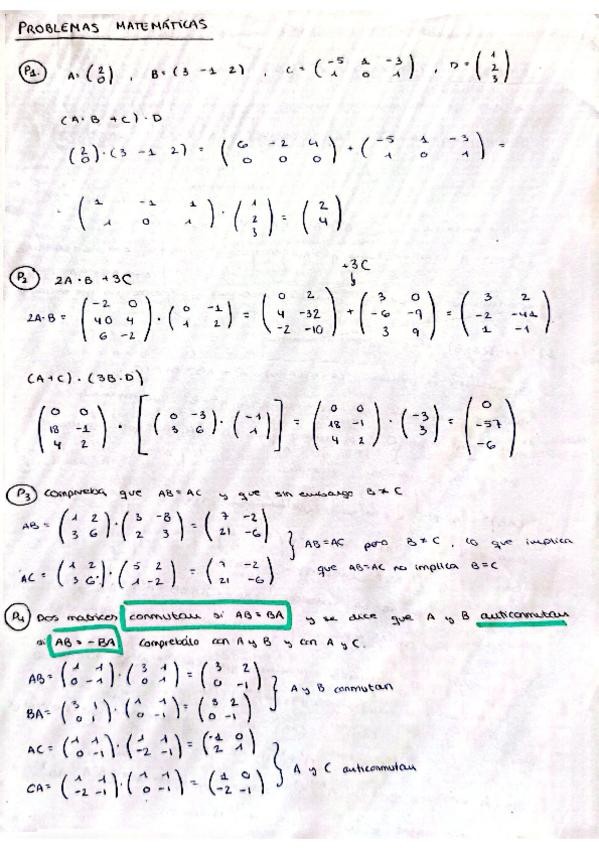 PROBLEMAS MATEMÁTICAS
P1. A = (2 0) , B = (3 -1 2) , C = (-5 1 -3 1 0 1) , D = (1 2 3)
(A · B + C) · D
(2 0) · (3 -1 2) = (6 -2 4 0 0 0) + (-5 1 -3 1 0 1) =
= (1 -1 1 1 0 1) · (1 2 3) = (2 4)
+3C
P2 2A · B + 3C
2A·B = (-2 0 40 4 6 -2) · (0 -1 1 2) = (0 2 4 -32 -2 -10) + (3 0 -6 -9 3 9) = (3 2 -2 -41 1 -1)
(A+C) · (3B · D)
(0 0 18 -1 4 2) · [(0 -3 3 6) · (-1 1)] = (0 0 18 -1 4 2) · (-3 3) = (0 -57 -6)
P3 Comprueba que AB = AC y que sin embargo B ≠ C
AB = (1 2 3 6) · (3 -8 2 3) = (7 -2 21 -6)
} AB = AC pero B ≠ C , lo que implica
AC = (1 2 3 6) · (5 2 1 -2) = (7 -2 21 -6)
que AB = AC no implica B = C
P4 Dos matrices conmutan si AB = BA y se dice que A y B anticonmutan
si AB = -BA Compruébalo con A y B y con A y C.
AB = (1 1 0 -1) · (3 1 0 1) = (3 2 0 -1)
} A y B conmutan
BA = (3 1 0 1) · (1 1 0 -1) = (3 2 0 -1)
AC = (1 1 0 -1) · (1 1 -2 -1) = (-1 0 2 1)
} A y C anticonmutan
CA = (1 1 -2 -1) · (1 1 0 -1) = (1 0 -2 -1)